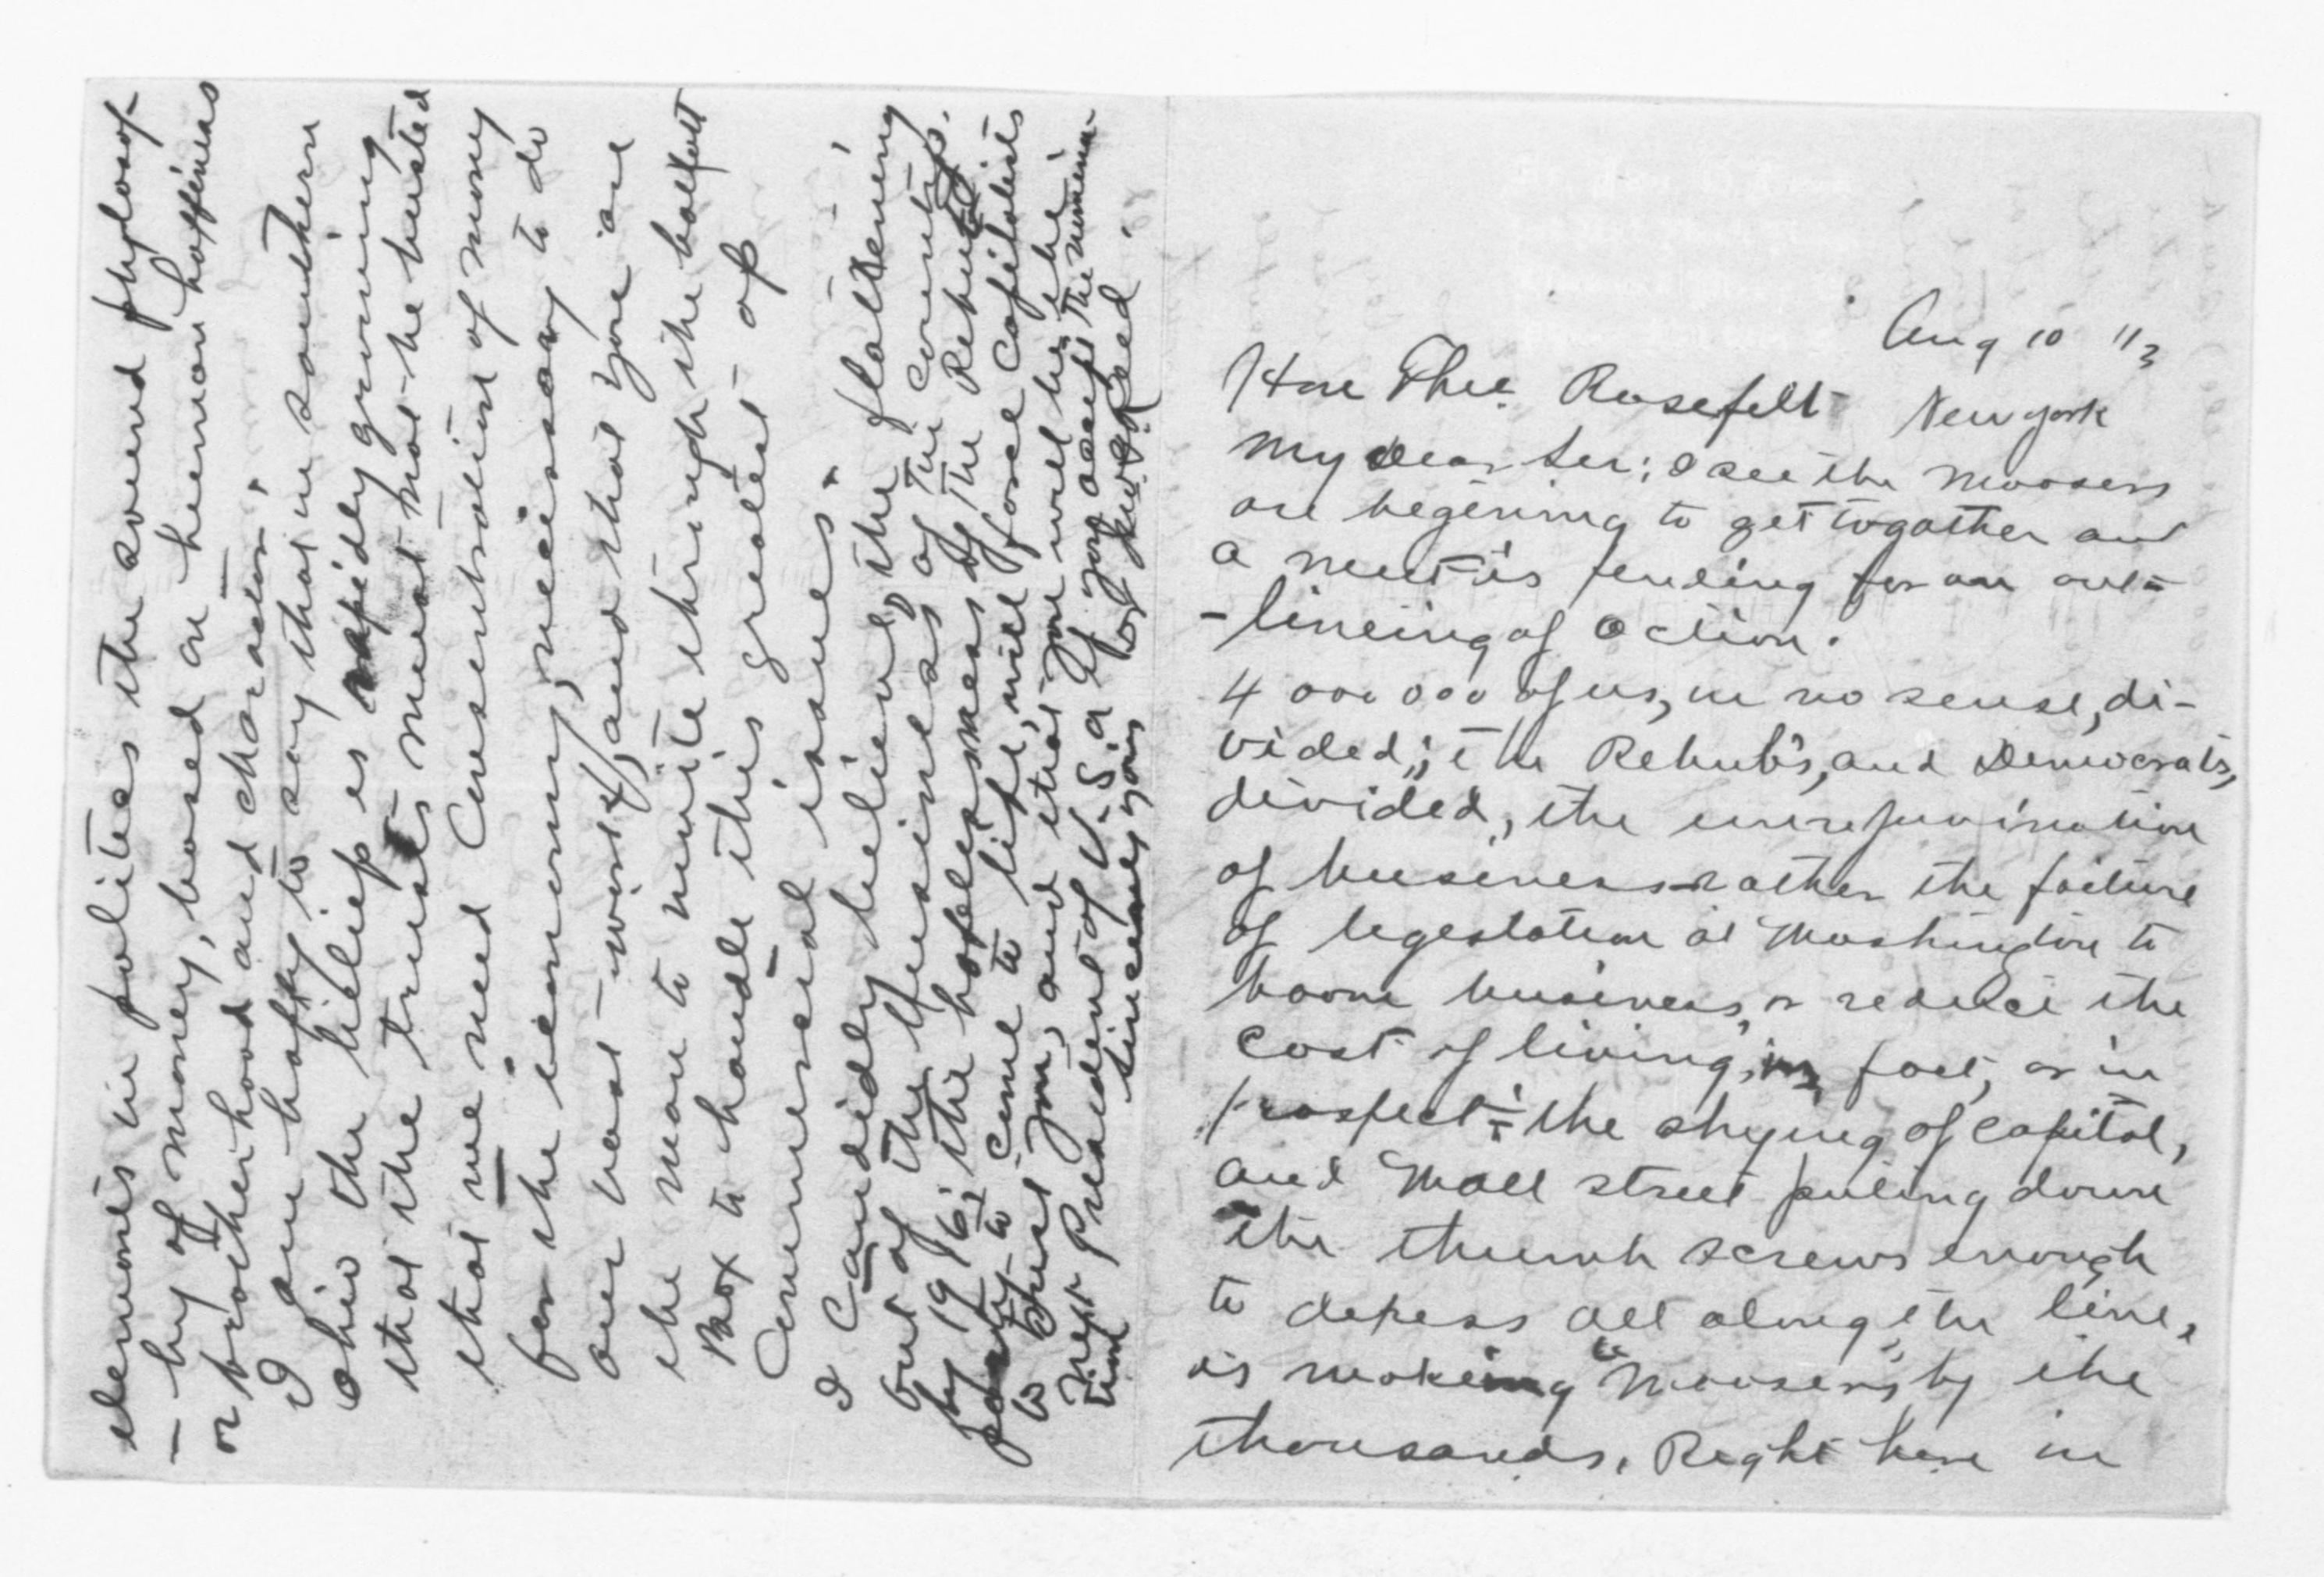 Aug 10 "13
Hon Theo. Rosefelt New york
My dear Ser; I see the Moosers
are begening to get togather and
a meet is pending for an out=
-lineing of action.
4 000 000 of us, in no sense, di-
vided; the Rehub's, and Democrats,
divided, the
of business rather the failure
of legeslation at Washington to
boom business, or reduce the
cost of living, in fact, or in
prospect; the shying of capital,
and Wall street puling down
the thumb screws enough
to depress all along the line,
is making "Moosers" by the
thousands. Right here in
elements in politics the sound phylosof-
-hy of money, based on human happiness
or brotherhood and charactor.
I am happy to say that in southern
Ohio the belief is rapidly growing
that the trusts must not be busted
that we need Consentration of money
for the economy, necissary to do
our vast work, and that you are
the man to write through the ballott
Box to handle this greatest of
Commercial issues.
I Candidly believe, the flattening
out of the business of the Country,
by 1916; the hopelessness of the Rehub
party to come to life, will force Capitalists
to trust you, and that you will be the
next President of U.S.a if you accept the nomina-
tion sincearly yours